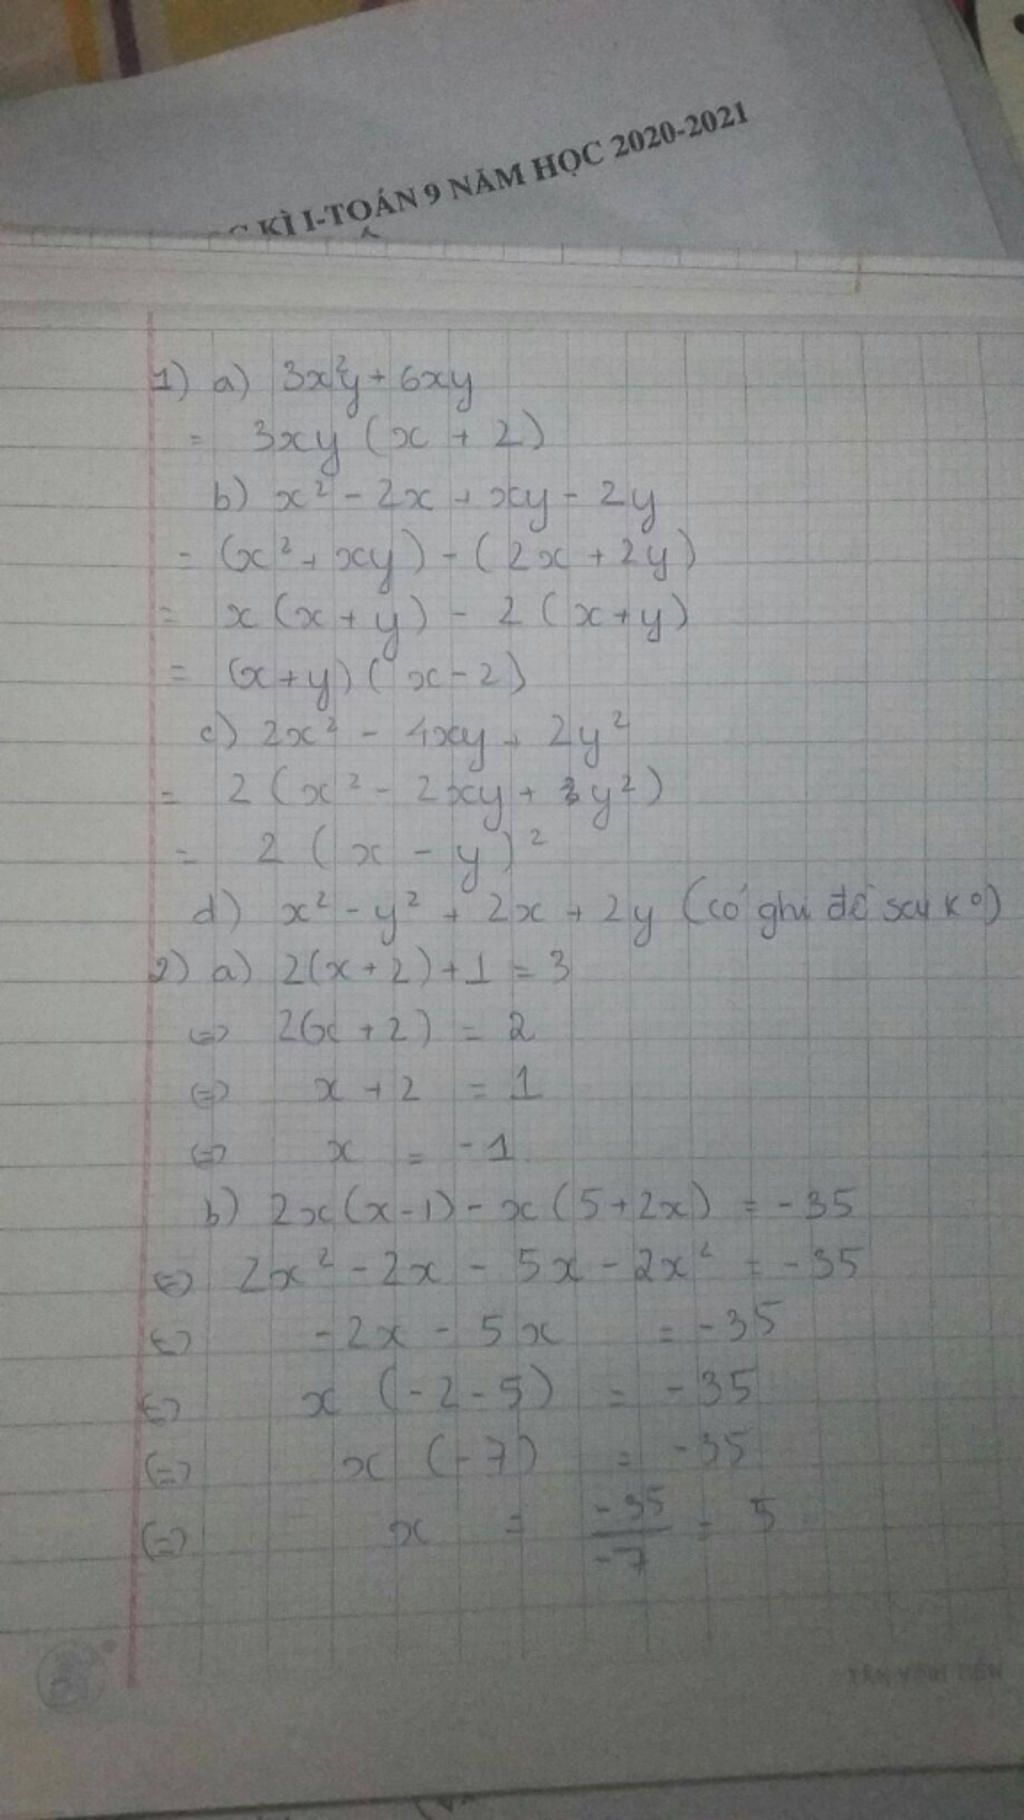 KÌ I-TOÁN 9 NĂM HỌC 2020-2021
1) a) 3x²y + 6xy
= 3xy (x + 2)
b) x² - 2x + xy - 2y
= (x² + xy) - (2x + 2y)
= x (x + y) - 2 (x + y)
= (x + y) (x - 2)
c) 2x² - 4xy + 2y²
= 2 (x² - 2xy + y²)
= 2 (x - y)²
d) x² - y² + 2x + 2y (có ghi đề sai k°)
2) a) 2(x + 2) + 1 = 3
⇔ 2(x + 2) = 2
⇔ x + 2 = 1
⇔ x = -1
b) 2x (x - 1) - x (5 + 2x) = -35
⇔ 2x² - 2x - 5x - 2x² = -35
⇔ -2x - 5x = -35
⇔ x (-2 - 5) = -35
⇔ x (-7) = -35
⇔ x = -35/-7 = 5